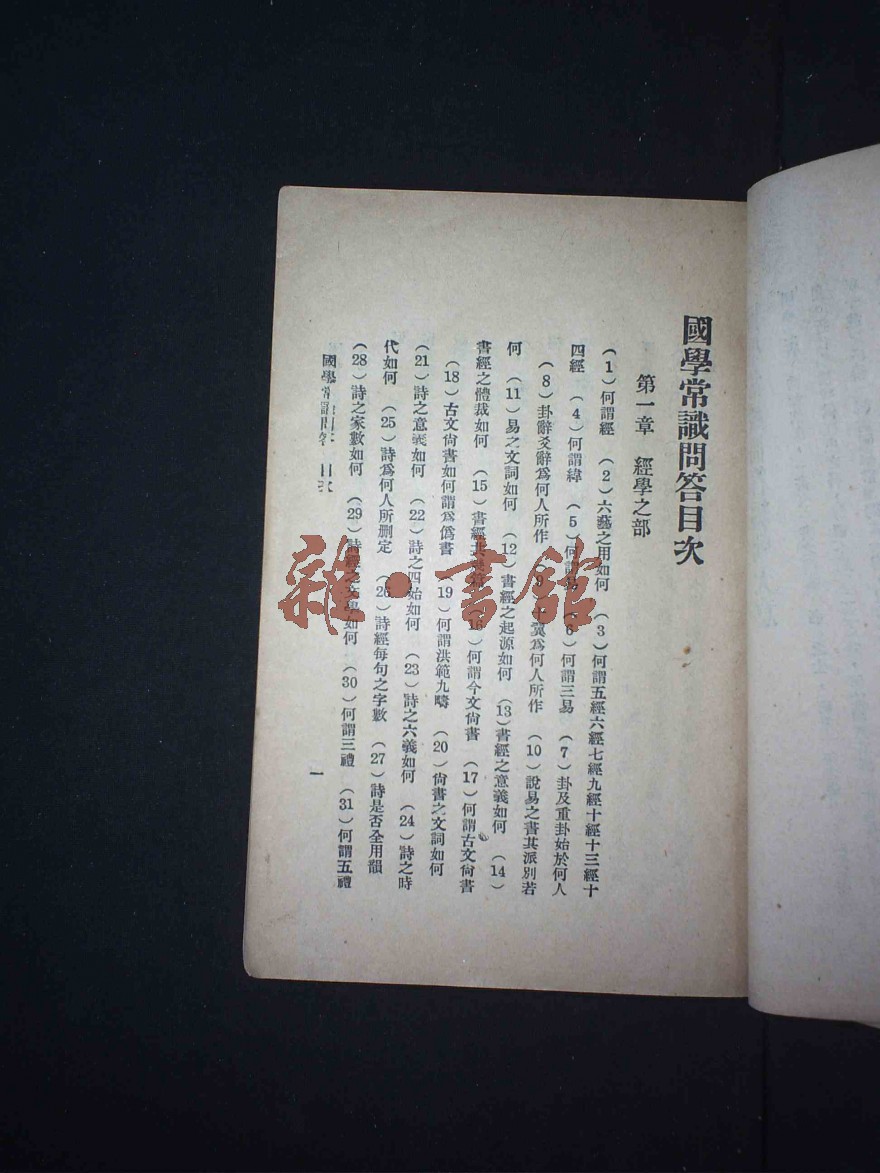 國學常識問答目次
第一章 經學之部
(1)何謂經 (2)六藝之用如何 (3)何謂五經六經七經九經十經十三經十
四經 (4)何謂緯 (5)何謂易 (6)何謂三易 (7)卦及重卦始於何人
(8)卦辭爻辭爲何人所作 (9)十翼爲何人所作 (10)說易之書其派別若
何 (11)易之文詞如何 (12)書經之起源如何 (13)書經之意義如何 (14)
書經之體裁如何 (15)書經共幾篇 (16)何謂今文尙書 (17)何謂古文尙書
(18)古文尙書如何謂爲僞書 (19)何謂洪範九疇 (20)尙書之文詞如何
(21)詩之意義如何 (22)詩之四始如何 (23)詩之六義如何 (24)詩之時
代如何 (25)詩爲何人所删定 (26)詩經每句之字數 (27)詩是否全用韻
(28)詩之家數如何 (29)詩經之文學如何 (30)何謂三禮 (31)何謂五禮
國學常識問答 目次
一
雜·書館